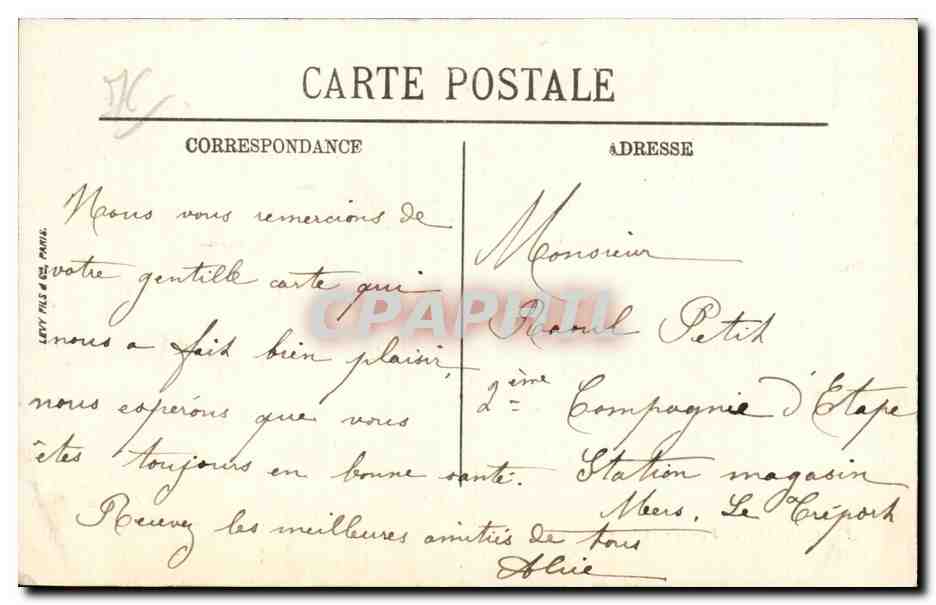 CARTE POSTALE
CORRESPONDANCE
ADRESSE
Nous vous remercions de
votre gentille carte qui
nous a fait bien plaisir,
nous esperons que vous
êtes toujours en bonne santé.
Recevez les meilleures amitiés de tous
Monsieur
Raoul Petit
2ème Compagnie d'Etape
Station magasin
Mers, Le Tréport
LEVY FILS & Cie, PARIS.
CPAPHIL